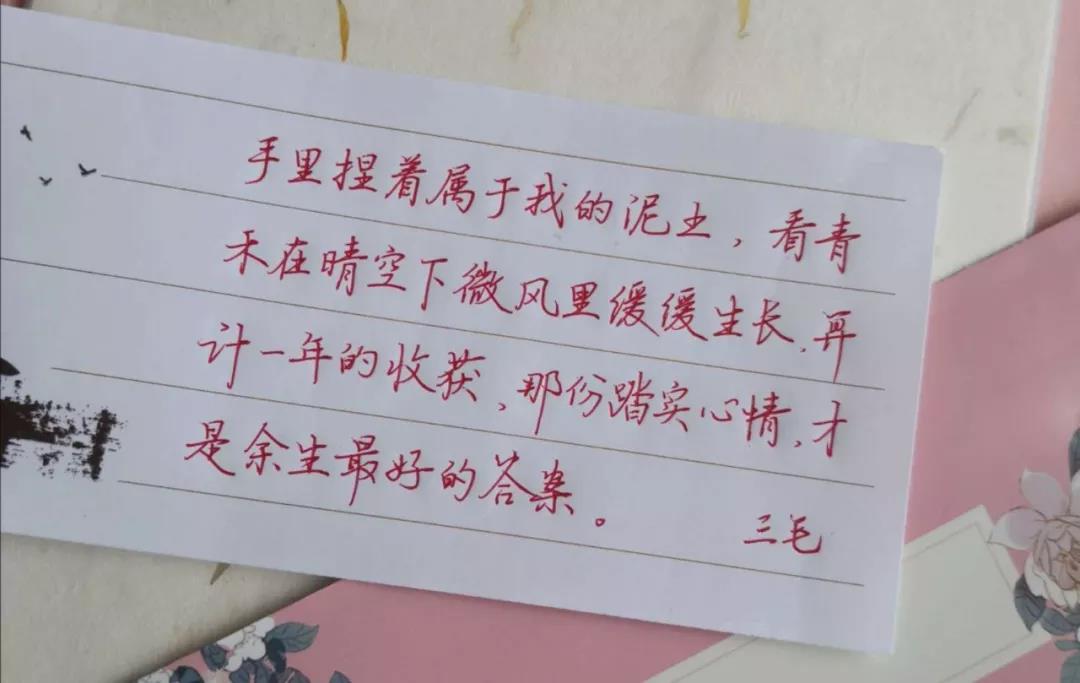 手里捏着属于我的泥土，看青
禾在晴空下微风里缓缓生长，再
计一年的收获，那份踏实心情，才
是余生最好的答案。
三毛